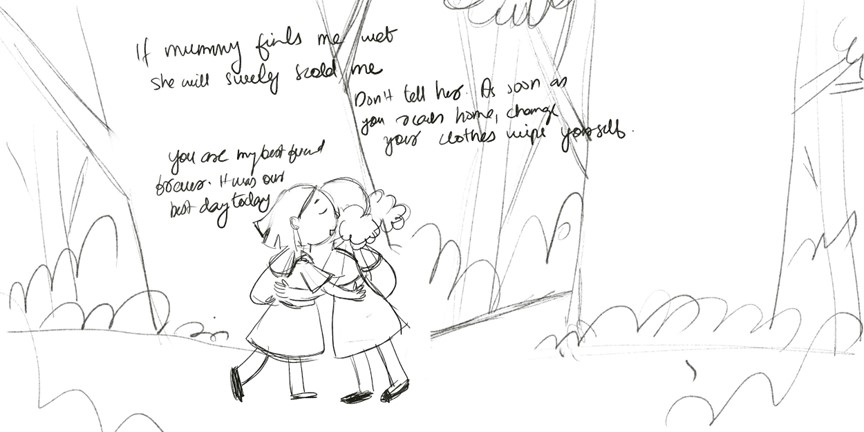 If mummy finds me wet
she will surely scold me
Don't tell her. As soon as
you reach home, change
your clothes wipe yourself.
you are my best friend
forever. It was our
best day today